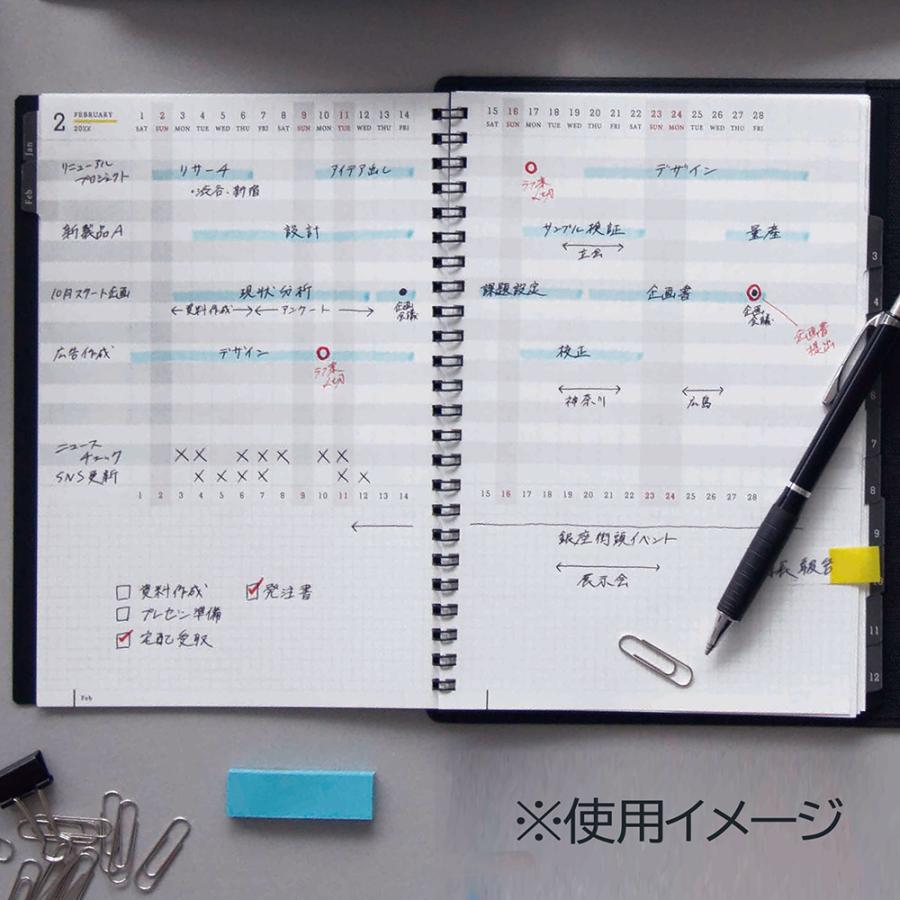 2 FEBRUARY
20XX
1 2 3 4 5 6 7 8 9 10 11 12 13 14
SAT SUN MON TUE WED THU FRI SAT SUN MON TUE WED THU FRI
Jan
Feb
リニューアル
プロジェクト
リサーチ
アイデア出し
・渋谷、新宿
新製品A
設計
10月スタート企画
現状分析
資料作成
アンケート
企画
会議
広告作成
デザイン
ラフ案
〆切
ニュース
チェック
×× ××× ××
SNS更新
×××× ××
1 2 3 4 5 6 7 8 9 10 11 12 13 14
資料作成
発注書
プレゼン準備
宅配受取
Feb
15 16 17 18 19 20 21 22 23 24 25 26 27 28
SAT SUN MON TUE WED THU FRI SAT SUN MON TUE WED THU FRI
ラフ案
〆切
デザイン
サンプル検証
量産
立会
課題設定
企画書
企画
会議
企画書
提出
校正
神奈川
広島
15 16 17 18 19 20 21 22 23 24 25 26 27 28
銀座街頭イベント
展示会
3
4
6
7
8
9
11
12
※使用イメージ